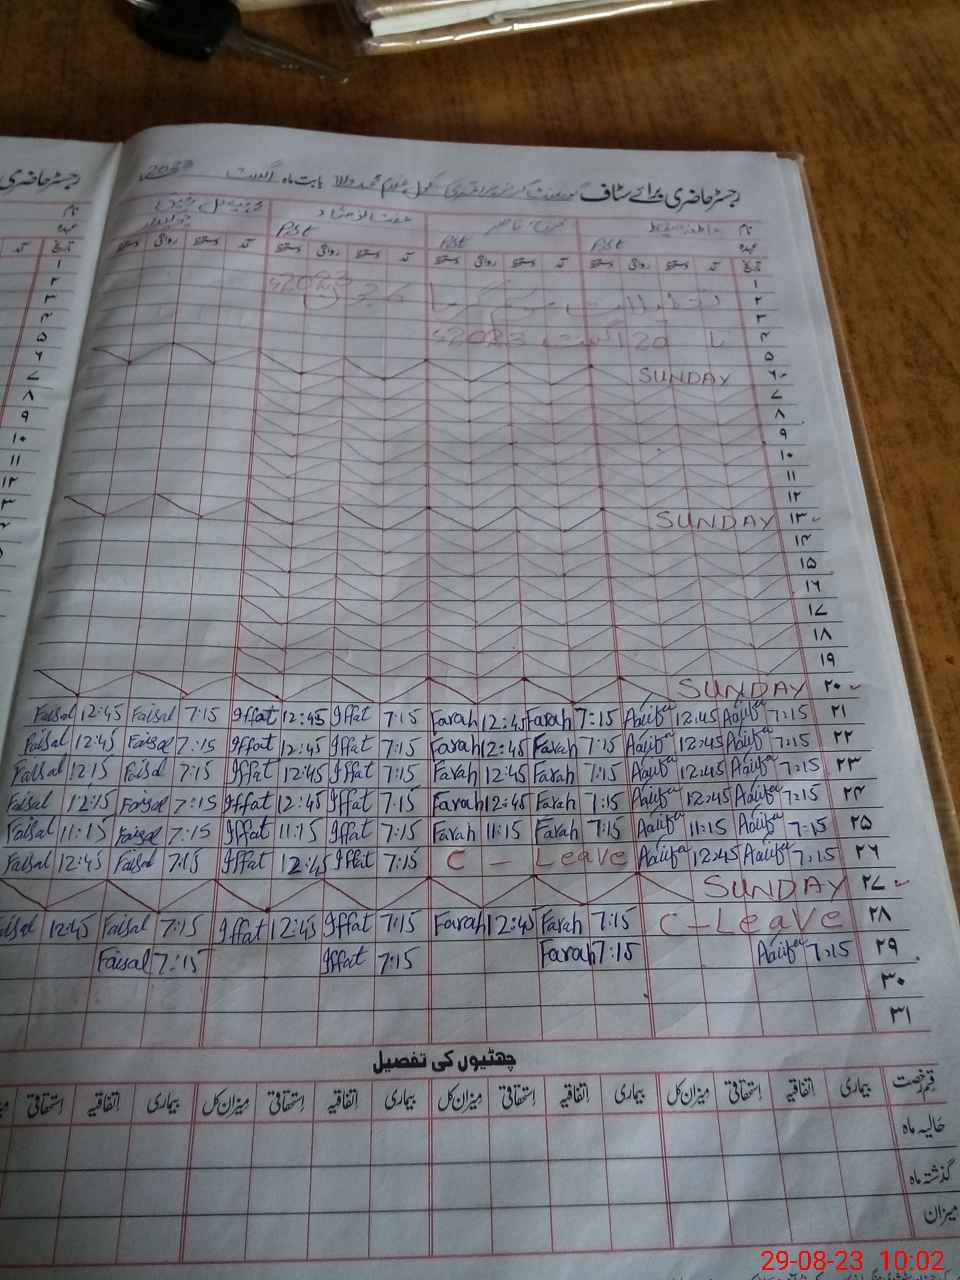 رجسٹر حاضری برائے سٹاف گورنمنٹ گرلز پرائمری سکول غلام محمد والا بابت ماہ اگست 2023
رجسٹر حاضری
نام
عہدہ Pst Pst Pst
تاریخ آمد دستخط روانگی دستخط آمد دستخط روانگی دستخط آمد دستخط روانگی دستخط آمد دستخط روانگی دستخط
۱
۲ تعطیلات موسم گرما 2023
۳
۴ تا 20 اگست 2023
۵
۶ SUNDAY
۷
۸
۹
۱۰
۱۱
۱۲
۱۳ SUNDAY
۱۴
۱۵
۱۶
۱۷
۱۸
۱۹
۲۰ SUNDAY
Faisal 12:45 Faisal 7:15 Iffat 12:45 Iffat 7:15 Farah 12:45 Farah 7:15 Aalifa 12:45 Aalifa 7:15 ۲۱
Faisal 12:45 Faisal 7:15 Iffat 12:45 Iffat 7:15 Farah 12:45 Farah 7:15 Aalifa 12:45 Aalifa 7:15 ۲۲
Faisal 12:15 Faisal 7:15 Iffat 12:45 Iffat 7:15 Farah 12:45 Farah 7:15 Aalifa 12:45 Aalifa 7:15 ۲۳
Faisal 12:15 Faisal 7:15 Iffat 12:45 Iffat 7:15 Farah 12:45 Farah 7:15 Aalifa 12:45 Aalifa 7:15 ۲۴
Faisal 11:15 Faisal 7:15 Iffat 11:15 Iffat 7:15 Farah 11:15 Farah 7:15 Aalifa 11:15 Aalifa 7:15 ۲۵
Faisal 12:45 Faisal 7:15 Iffat 12:45 Iffat 7:15 C - Leave Aalifa 12:45 Aalifa 7:15 ۲۶
SUNDAY ۲۷
Faisal 12:45 Faisal 7:15 Iffat 12:45 Iffat 7:15 Farah 12:45 Farah 7:15 C-Leave ۲۸
Faisal 7:15 Iffat 7:15 Farah 7:15 Aalifa 7:15 ۲۹
۳۰
۳۱
چھٹیوں کی تفصیل
قسم رخصت بیماری اتفاقیہ استحقاقی میزان کل بیماری اتفاقیہ استحقاقی میزان کل بیماری اتفاقیہ استحقاقی میزان کل بیماری اتفاقیہ استحقاقی
حالیہ ماہ
گذشتہ ماہ
میزان
29-08-23 10:02